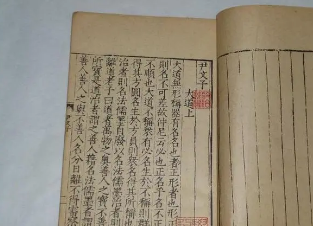 尹文子
大道上
大道無形稱器有名名也者正形者也形正
則名不可差故仲尼云必也正名乎名不正
不順也大道不稱衆有必名生於不稱則群
得其方圓名生於方圓則衆名得其所稱也
治者則名法儒墨自廢以名法儒墨治者則
離道老子曰道者萬物之奧善人之寶不善
所寶是道治者謂之善人藉名法儒墨者謂
善人善人之與不善人名分日離不待審